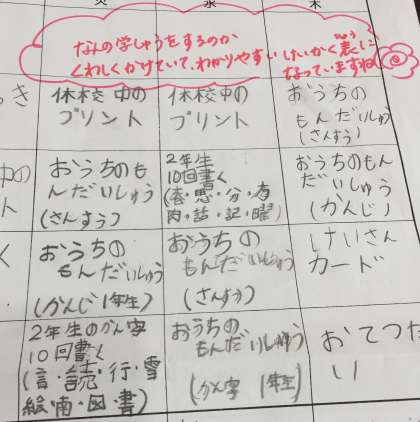 火 水 木
なんの学しゅうをするのか
くわしくかけていて、わかりやすい けいかく表に
なっていますね
っき
休校中の
プリント
休校中の
プリント
おうちの
もんだいしゅう
(さんすう)
中の
ト
おうちのも
んだいしゅう
(さんすう)
2年生
10回書く
おうちのもん
だいしゅう
(かんじ)
く
おうちの
もんだいしゅう
(かんじ1年生)
おうちの
もんだいしゅう
(さんすう)
けいさん
カード
2年生のかん字
10回書く
(言・読・行・雪
絵・南・図・書)
おうちの
もんだいしゅう
(かん字 1年生)
おてつだ
い